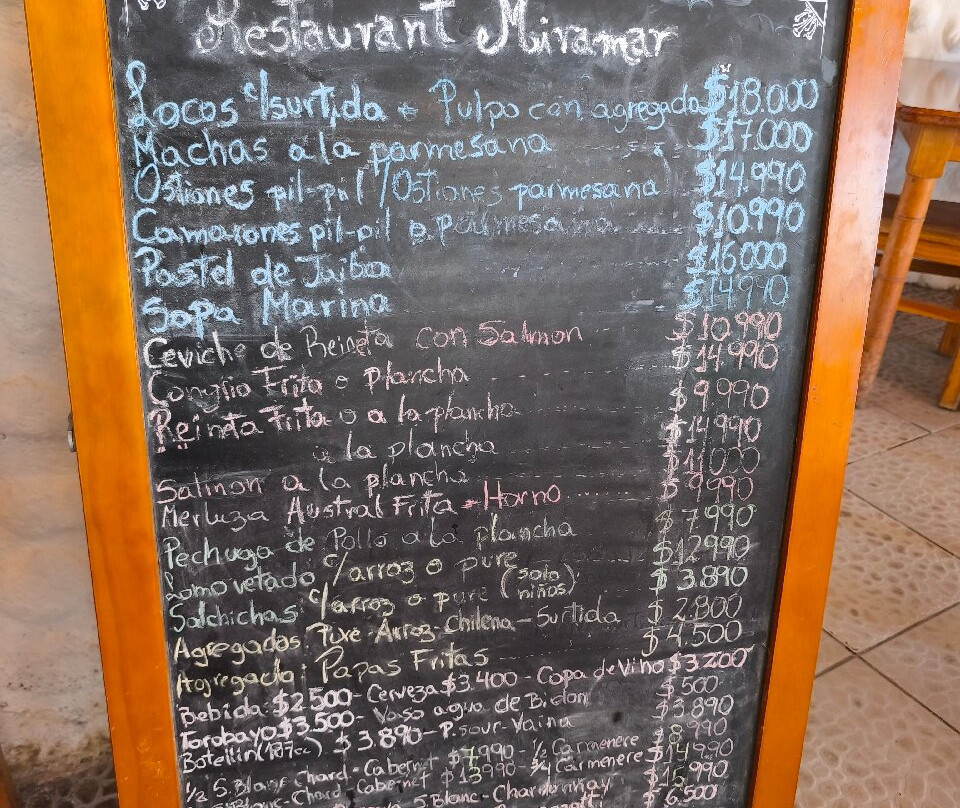 Restaurant Miramar
Locos c/surtida + Pulpo con agregado $18.000
Machas a la parmesana $17.000
Ostiones pil-pil / Ostiones parmesana $14.990
Camarones pil-pil o parmesana $10.990
Pastel de Jaiba $16.000
Sopa Marina $14.990
Ceviche de Reineta con Salmon $10.990
Frito o plancha $14.990
Reineta Frita o a la plancha $9.990
a la plancha $14.990
Salmon a la plancha $11.000
Merluza Austral Frita - Horno $9.990
Pechuga de Pollo a la plancha $7.990
Lomo vetado c/arroz o pure $12.990
Salchichas c/arroz o pure (solo niños) $3.890
Agregados Pure-Arroz-Chilena-Surtida $2.800
Agregado Papas Fritas $4.500
Bebida $2.500 - Cerveza $3.400 - Copa de Vino $3.200
Torobayo $3.500 - Vaso agua de Bidon $500
Botellin (187cc) $3.890 - P. Sour-Vaina $3.890
$8.990
1/2 S. Blanc-Chard-Cabernet $7.990 - 1/2 Carmenere $14.990
Blanc-Chard-Cabernet $13.990 - 3/4 Carmenere $15.990
S. Blanc-Chardonnay $6.500